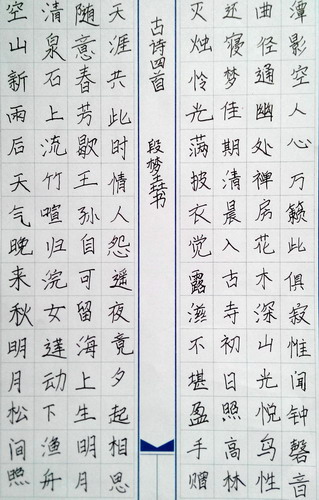 空山新雨后天气晚来秋明月松间照
清泉石上流竹喧归浣女莲动下渔舟
随意春芳歇王孙自可留海上生明月
天涯共此时情人怨遥夜竟夕起相思
古诗四首
段梦书
灭烛怜光满披衣觉露滋不堪盈手赠
还寝梦佳期清晨入古寺初日照高林
曲径通幽处禅房花木深山光悦鸟性
潭影空人心万籁此俱寂惟闻钟磬音